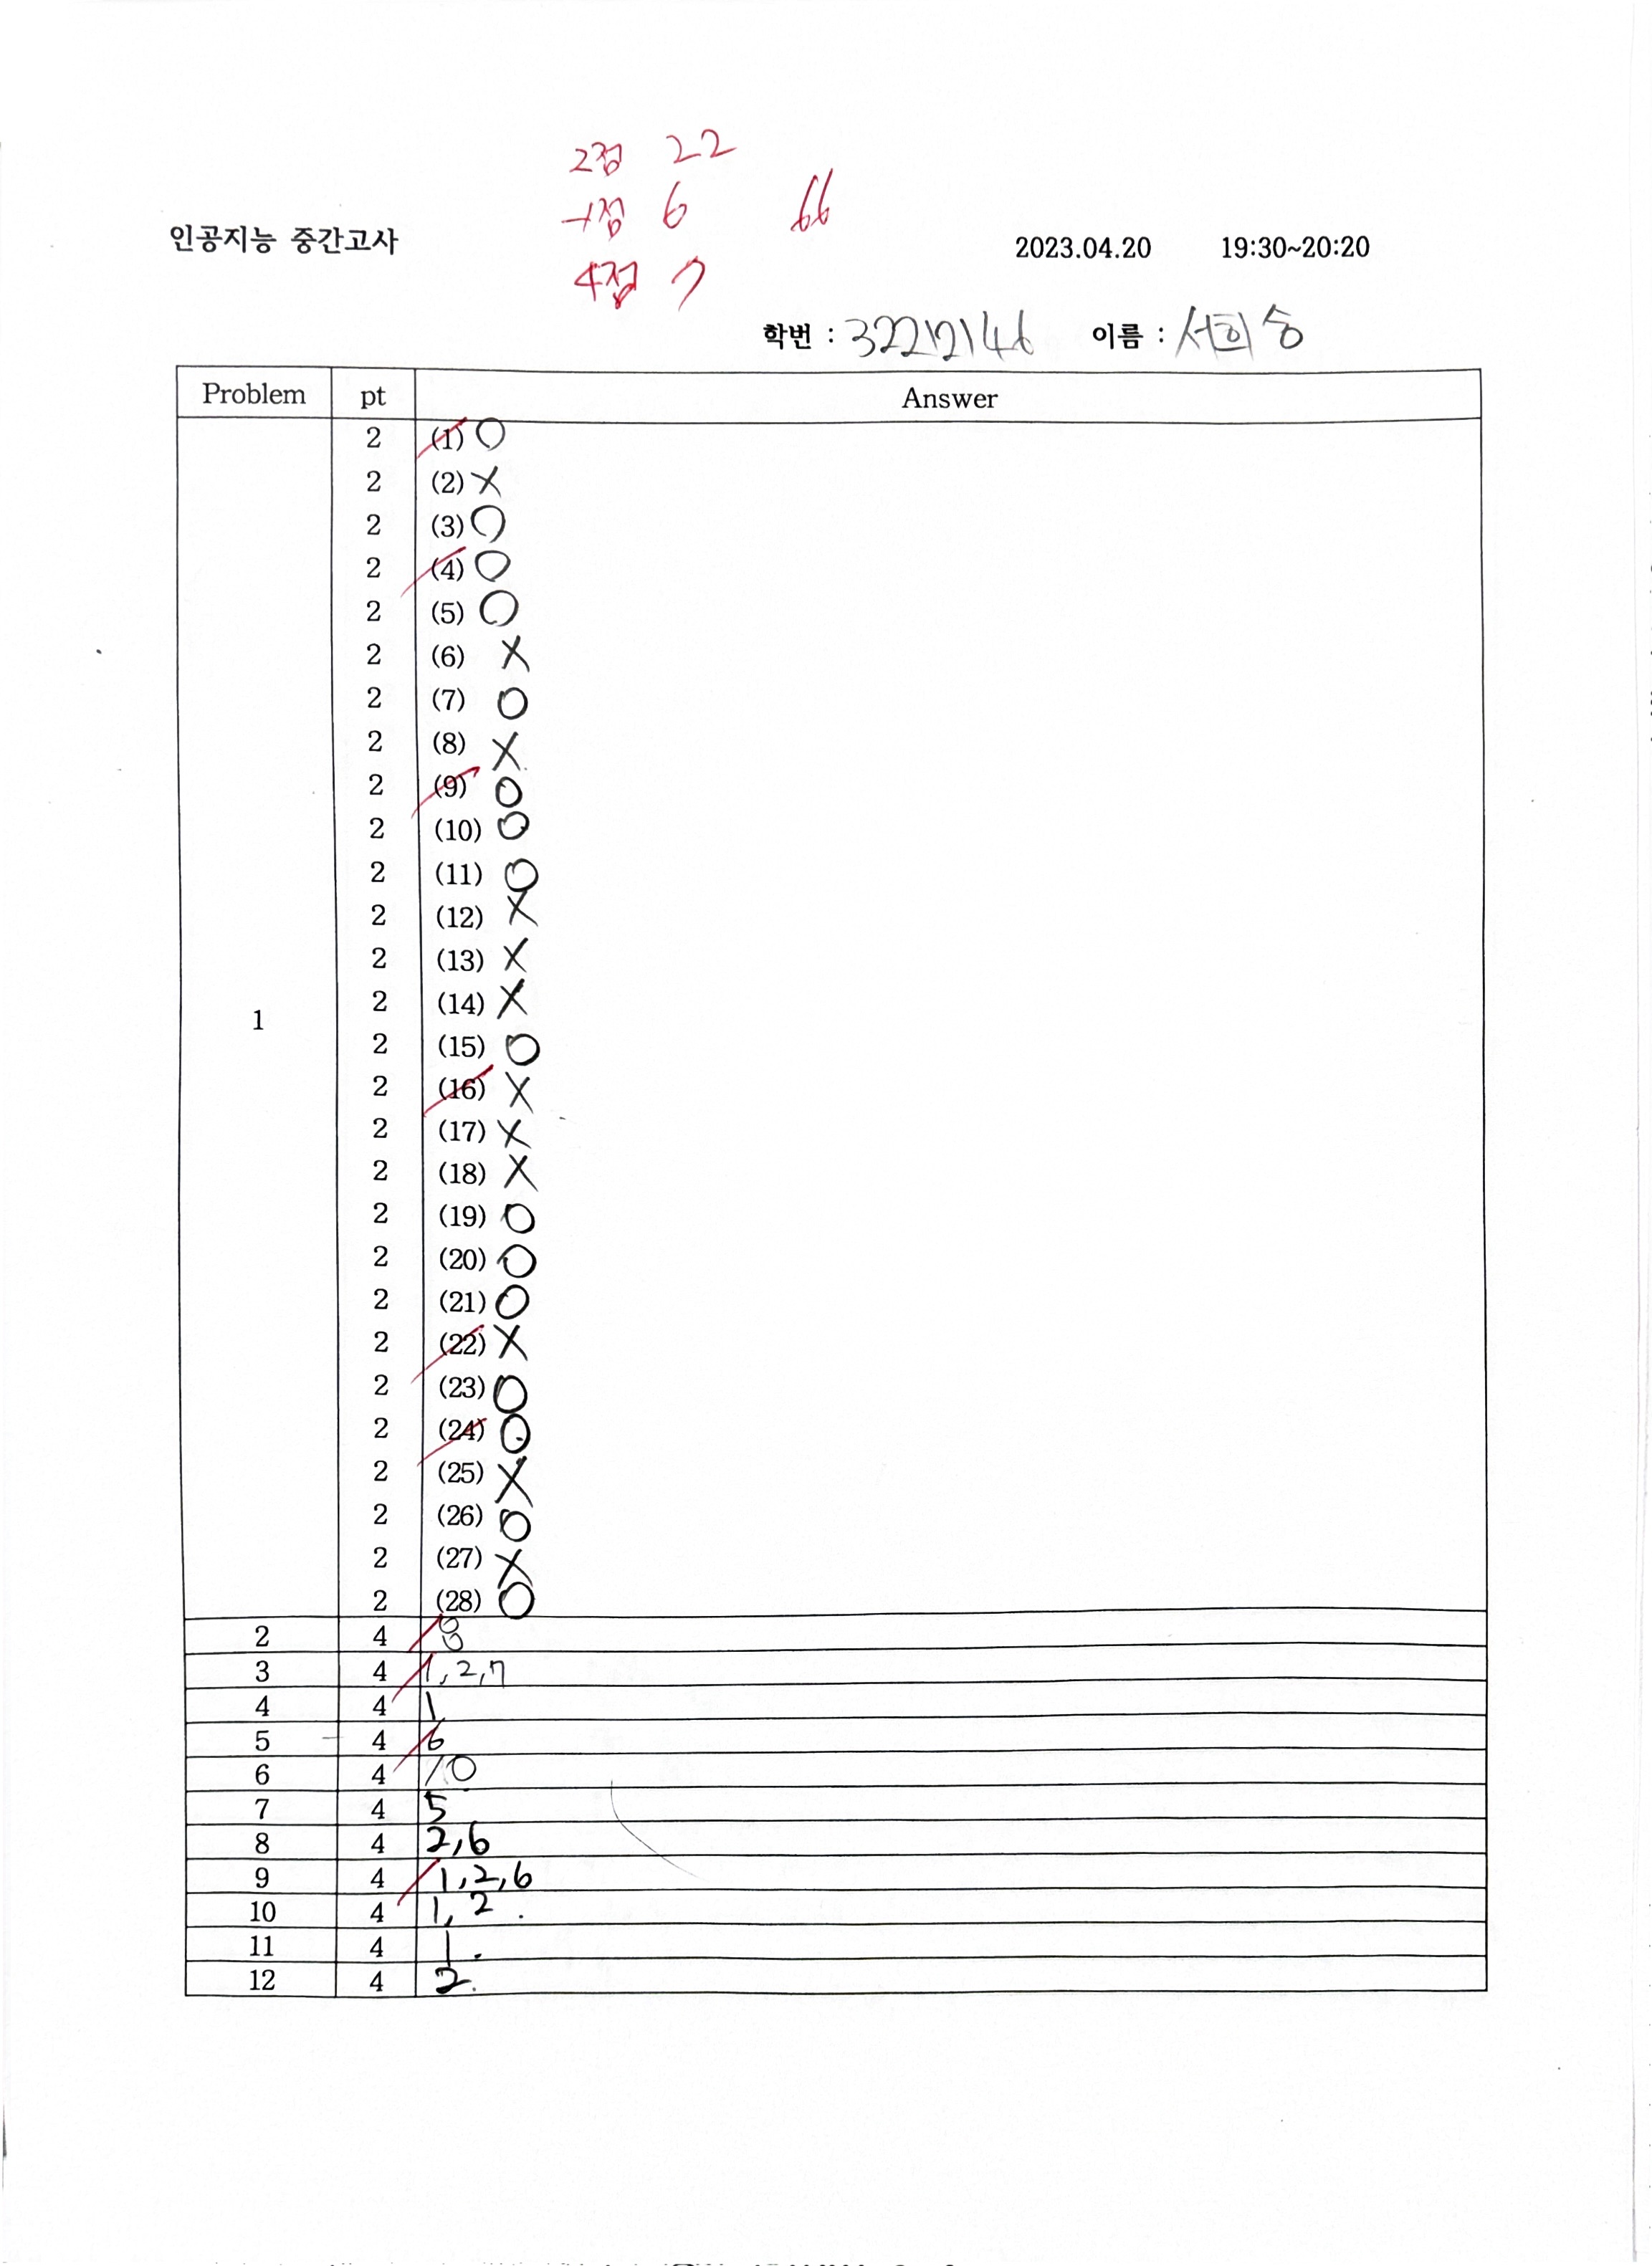 2점 22
-1점 6 66
인공지능 중간고사 2023.04.20 19:30~20:20
4점 7
학번 : 32212146 이름 : 서희승
Problem pt Answer
2 (1) O
2 (2) X
2 (3) O
2 (4) O
2 (5) O
2 (6) X
2 (7) O
2 (8) X
2 (9) O
2 (10) O
2 (11) O
2 (12) X
2 (13) X
2 (14) X
1
2 (15) O
2 (16) X
2 (17) X
2 (18) X
2 (19) O
2 (20) O
2 (21) O
2 (22) X
2 (23) O
2 (24) O
2 (25) X
2 (26) O
2 (27) X
2 (28) O
2 4 8
3 4 1, 2, 7
4 4 1
5 4 6
6 4 10
7 4 5
8 4 2, 6
9 4 1, 2, 6
10 4 1, 2 .
11 4 1.
12 4 2.